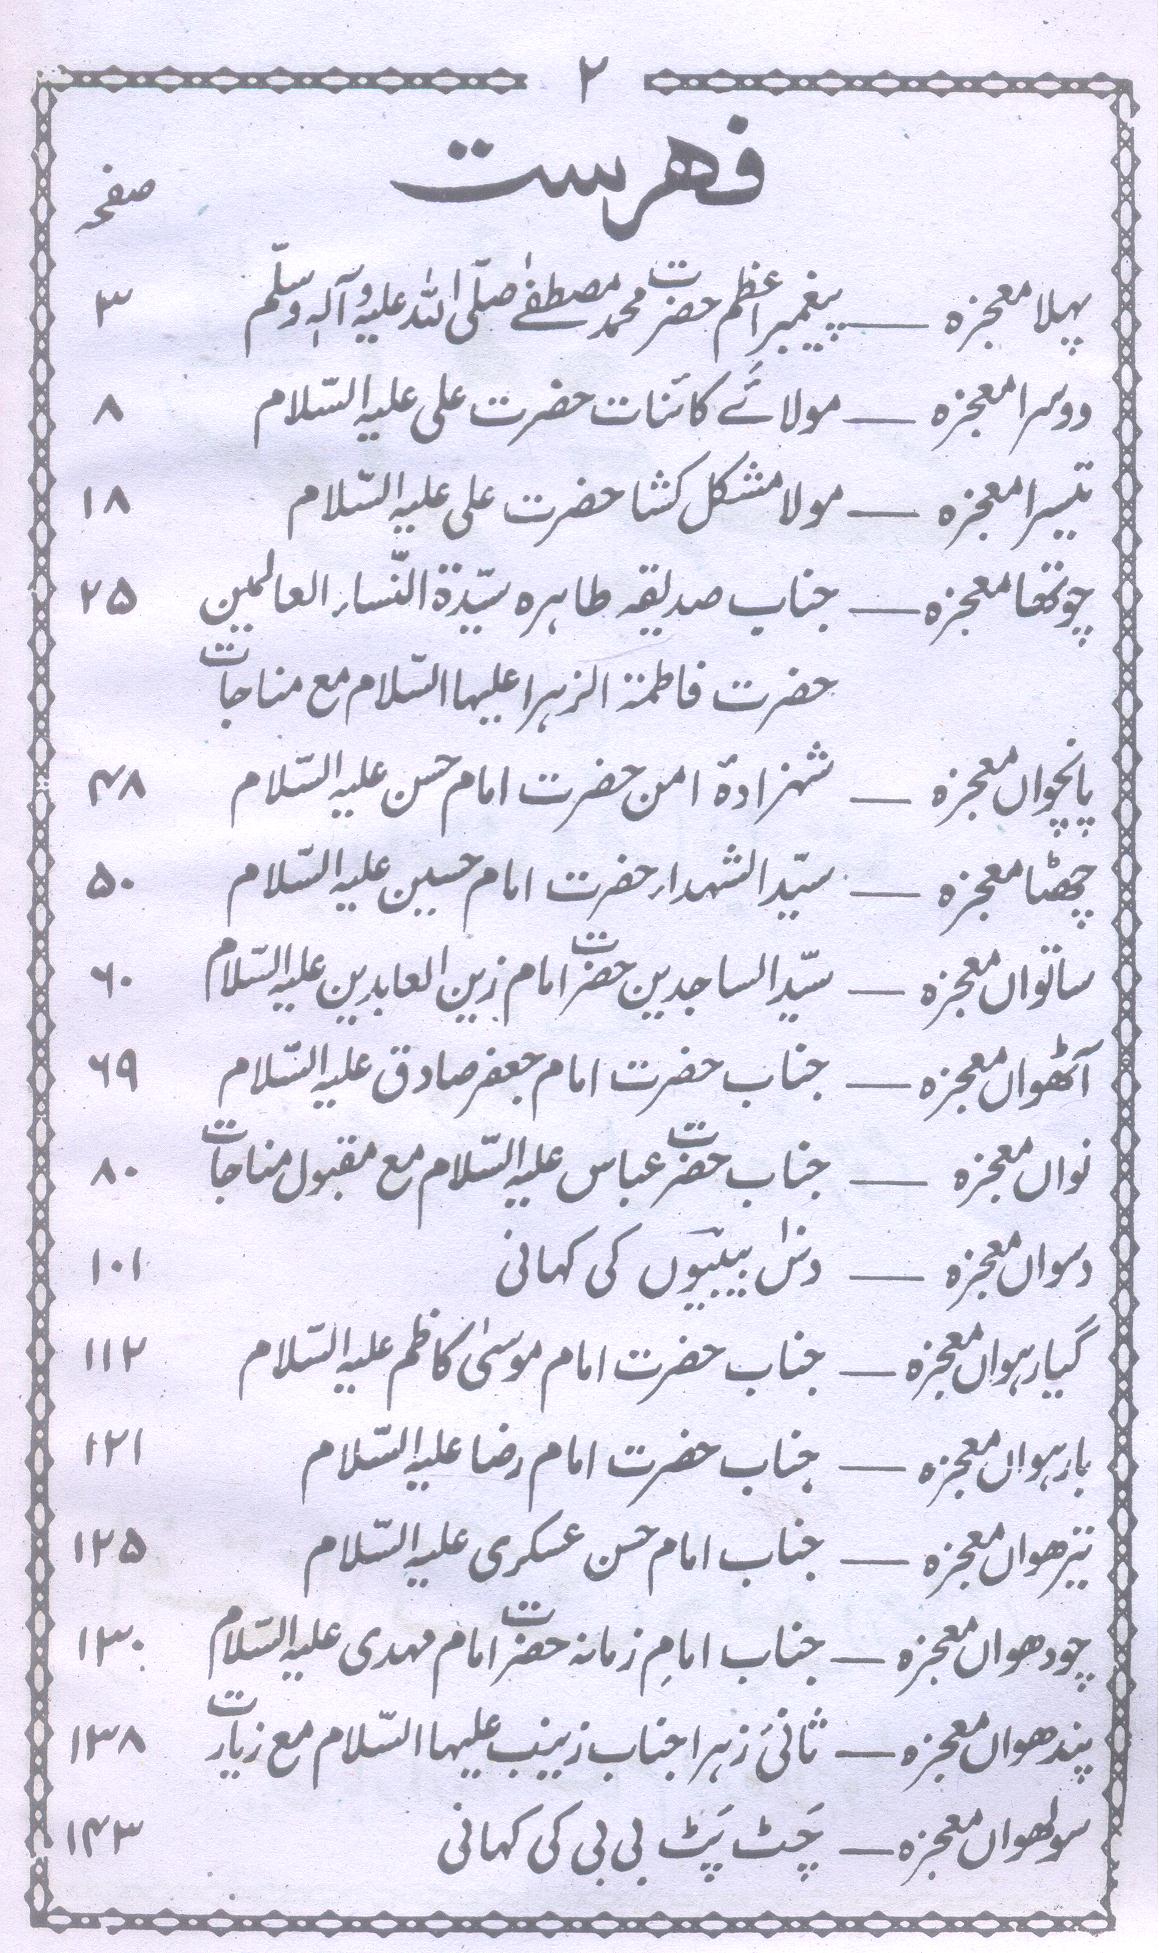 ۲
فہرست
صفحہ
پہلا معجزہ — پیغمبر اعظم حضرت محمد مصطفےٰ صلّی اللہ علیہ وآلہٖ وسلّم ۳
دوسرا معجزہ — مولائے کائنات حضرت علی علیہ السّلام ۸
تیسرا معجزہ — مولا مشکل کشا حضرت علی علیہ السّلام ۱۸
چوتھا معجزہ — جناب صدیقہ طاہرہ سیّدۃ النّساء العالمین ۲۵
حضرت فاطمۃ الزہرا علیہا السّلام مع مناجات
پانچواں معجزہ — شہزادۂ امن حضرت امام حسن علیہ السّلام ۴۸
چھٹا معجزہ — سیّد الشہداء حضرت امام حسین علیہ السّلام ۵۰
ساتواں معجزہ — سیّد الساجدین حضرت امام زین العابدین علیہ السّلام ۶۰
آٹھواں معجزہ — جناب حضرت امام جعفر صادق علیہ السّلام ۶۹
نواں معجزہ — جناب حضرت عباس علیہ السّلام مع مقبول مناجات ۸۰
دسواں معجزہ — دس بیبیوں کی کہانی ۱۰۱
گیارہواں معجزہ — جناب حضرت امام موسیٰ کاظم علیہ السّلام ۱۱۲
بارہواں معجزہ — جناب حضرت امام رضا علیہ السّلام ۱۲۱
تیرھواں معجزہ — جناب امام حسن عسکری علیہ السّلام ۱۲۵
چودھواں معجزہ — جناب امامِ زمانہ حضرت امام مہدی علیہ السّلام ۱۳۰
پندھواں معجزہ — ثانیٔ زہرا جناب زینب علیہا السّلام مع زیارت ۱۳۸
سولھواں معجزہ — چَٹ پَٹ بی بی کی کہانی ۱۴۳